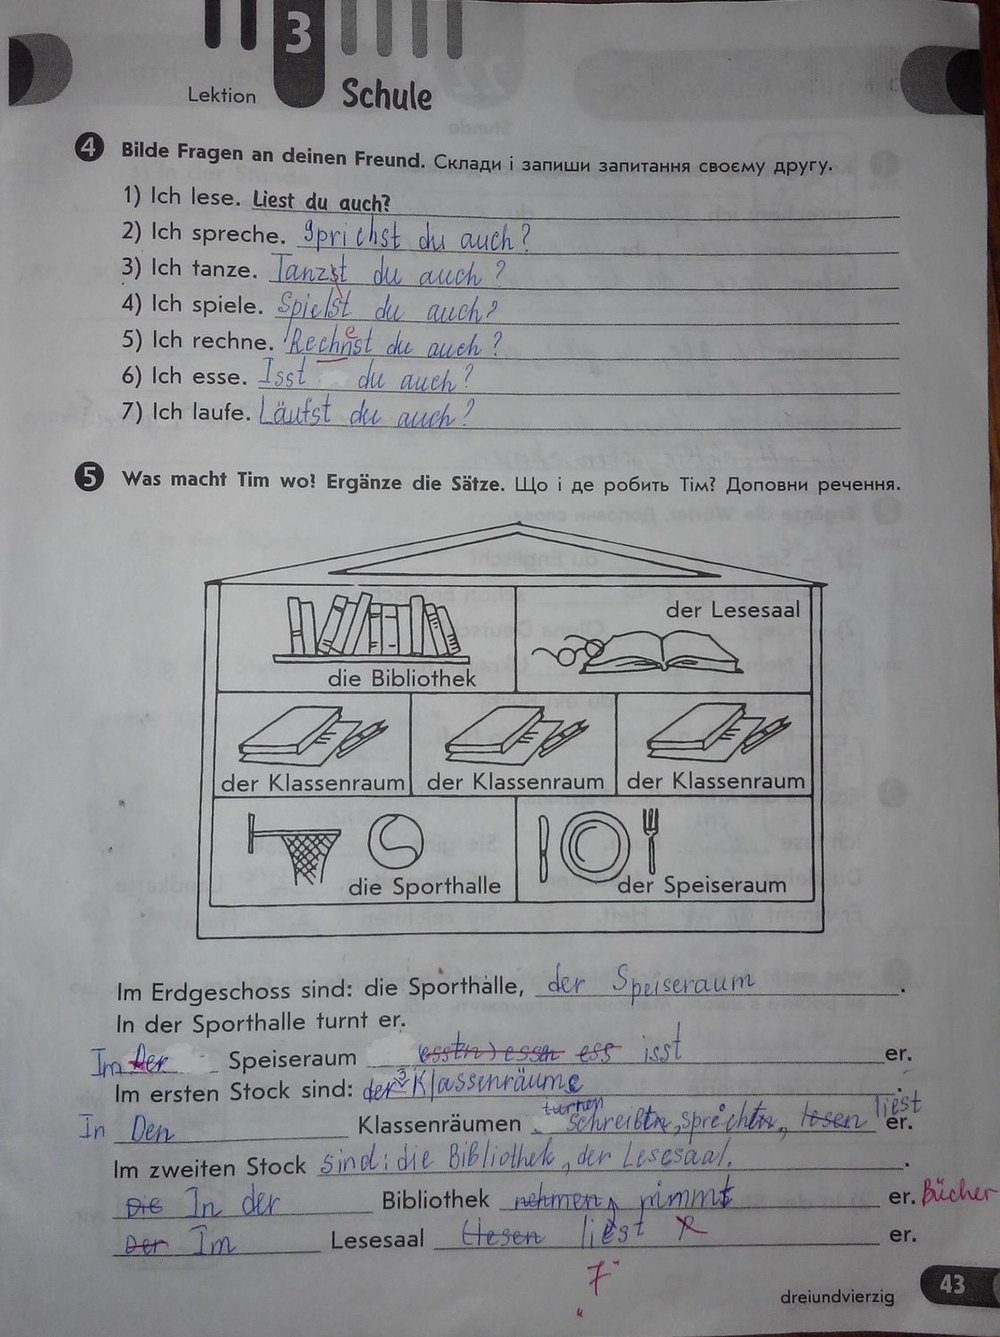 3
Lektion Schule
4 Bilde Fragen an deinen Freund. Склади і запиши запитання своєму другу.
1) Ich lese. Liest du auch?
2) Ich spreche. Sprichst du auch?
3) Ich tanze. Tanzst du auch?
4) Ich spiele. Spielst du auch?
5) Ich rechne. Rechnest du auch?
6) Ich esse. Isst du auch?
7) Ich laufe. Läufst du auch?
5 Was macht Tim wo? Ergänze die Sätze. Що і де робить Тім? Доповни речення.
der Lesesaal
die Bibliothek
der Klassenraum der Klassenraum der Klassenraum
die Sporthalle der Speiseraum
Im Erdgeschoss sind: die Sporthalle, der Speiseraum.
In der Sporthalle turnt er.
Im Der Speiseraum essen ess isst er.
Im ersten Stock sind: der 3 Klassenräume.
turnen liest
In Den Klassenräumen schreibt, spricht, lesen er.
Im zweiten Stock sind: die Bibliothek, der Lesesaal.
Die In der Bibliothek nehmen, nimmt er. Bücher
Der Im Lesesaal liesen liest er.
7
43
dreiundvierzig